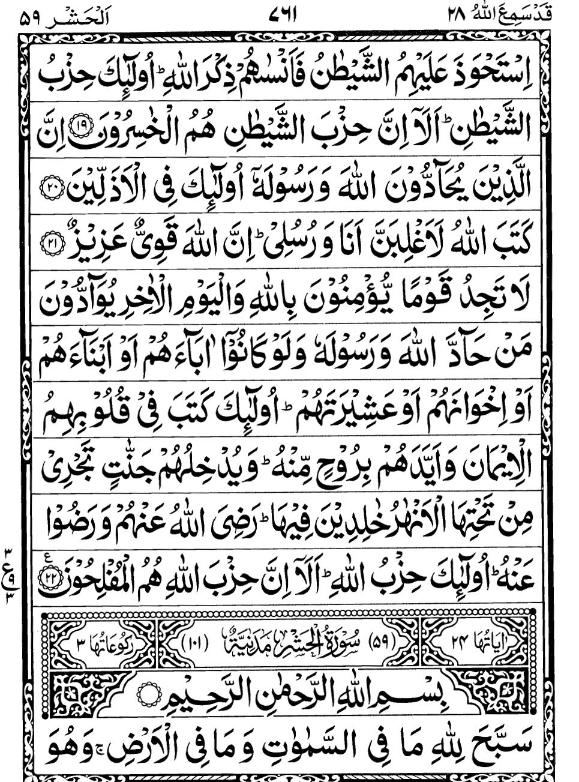 قَدۡسَمِعَ اللهُ ٢٨ ٧٦١ اَلۡحَشۡر ٥٩
اِسۡتَحۡوَذَ عَلَيۡهِمُ الشَّيۡطٰنُ فَاَنۡسٰىهُمۡ ذِكۡرَ اللّٰهِ ؕ اُولٰٓئِكَ حِزۡبُ
الشَّيۡطٰنِ ؕ اَلَاۤ اِنَّ حِزۡبَ الشَّيۡطٰنِ هُمُ الۡخٰسِرُوۡنَ ﴿١٩﴾ اِنَّ
الَّذِيۡنَ يُحَآدُّوۡنَ اللّٰهَ وَ رَسُوۡلَهٗۤ اُولٰٓئِكَ فِى الۡاَذَلِّيۡنَ ﴿٢٠﴾
كَتَبَ اللّٰهُ لَاَغۡلِبَنَّ اَنَا وَ رُسُلِىۡ ؕ اِنَّ اللّٰهَ قَوِىٌّ عَزِيۡزٌ ﴿٢١﴾
لَا تَجِدُ قَوۡمًا يُّؤۡمِنُوۡنَ بِاللّٰهِ وَالۡيَوۡمِ الۡاٰخِرِ يُوَآدُّوۡنَ
مَنۡ حَآدَّ اللّٰهَ وَ رَسُوۡلَهٗ وَ لَوۡ كَانُوۡۤا اٰبَآءَهُمۡ اَوۡ اَبۡنَآءَهُمۡ
اَوۡ اِخۡوَانَهُمۡ اَوۡ عَشِيۡرَتَهُمۡ ؕ اُولٰٓئِكَ كَتَبَ فِىۡ قُلُوۡبِهِمُ
الۡاِيۡمَانَ وَ اَيَّدَهُمۡ بِرُوۡحٍ مِّنۡهُ ؕ وَ يُدۡخِلُهُمۡ جَنّٰتٍ تَجۡرِىۡ
مِنۡ تَحۡتِهَا الۡاَنۡهٰرُ خٰلِدِيۡنَ فِيۡهَا ؕ رَضِىَ اللّٰهُ عَنۡهُمۡ وَ رَضُوۡا
عَنۡهُ ؕ اُولٰٓئِكَ حِزۡبُ اللّٰهِ ؕ اَلَاۤ اِنَّ حِزۡبَ اللّٰهِ هُمُ الۡمُفۡلِحُوۡنَ ﴿٢٢﴾ ع
٣
ع ٩
٣
اٰيَاتُهَا ٢٤ (٥٩) سُوۡرَةُ الۡحَشۡرِ مَدَنِيَّةٌ (١٠١) رُكُوۡعَاتُهَا ٣
بِسۡمِ اللّٰهِ الرَّحۡمٰنِ الرَّحِيۡمِ
سَبَّحَ لِلّٰهِ مَا فِى السَّمٰوٰتِ وَ مَا فِى الۡاَرۡضِ ۚ وَهُوَ